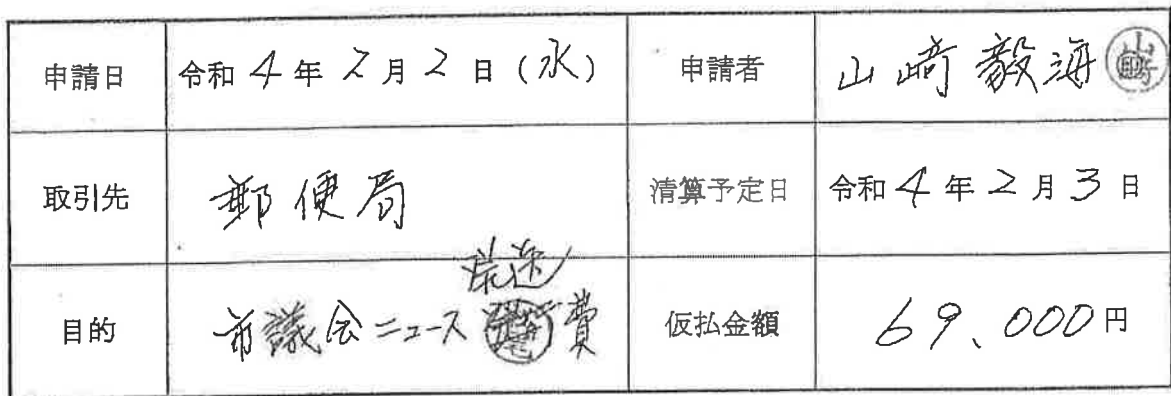 申請日 令和4年2月2日(水) 申請者 山﨑毅海 印
取引先 郵便局 清算予定日 令和4年2月3日
発送
目的 市議会ニュース費 仮払金額 69,000円